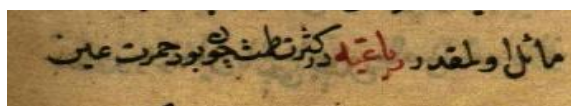 ماثل او لمقدر رباعیه در کثرت طمث چون بود حمرت عین